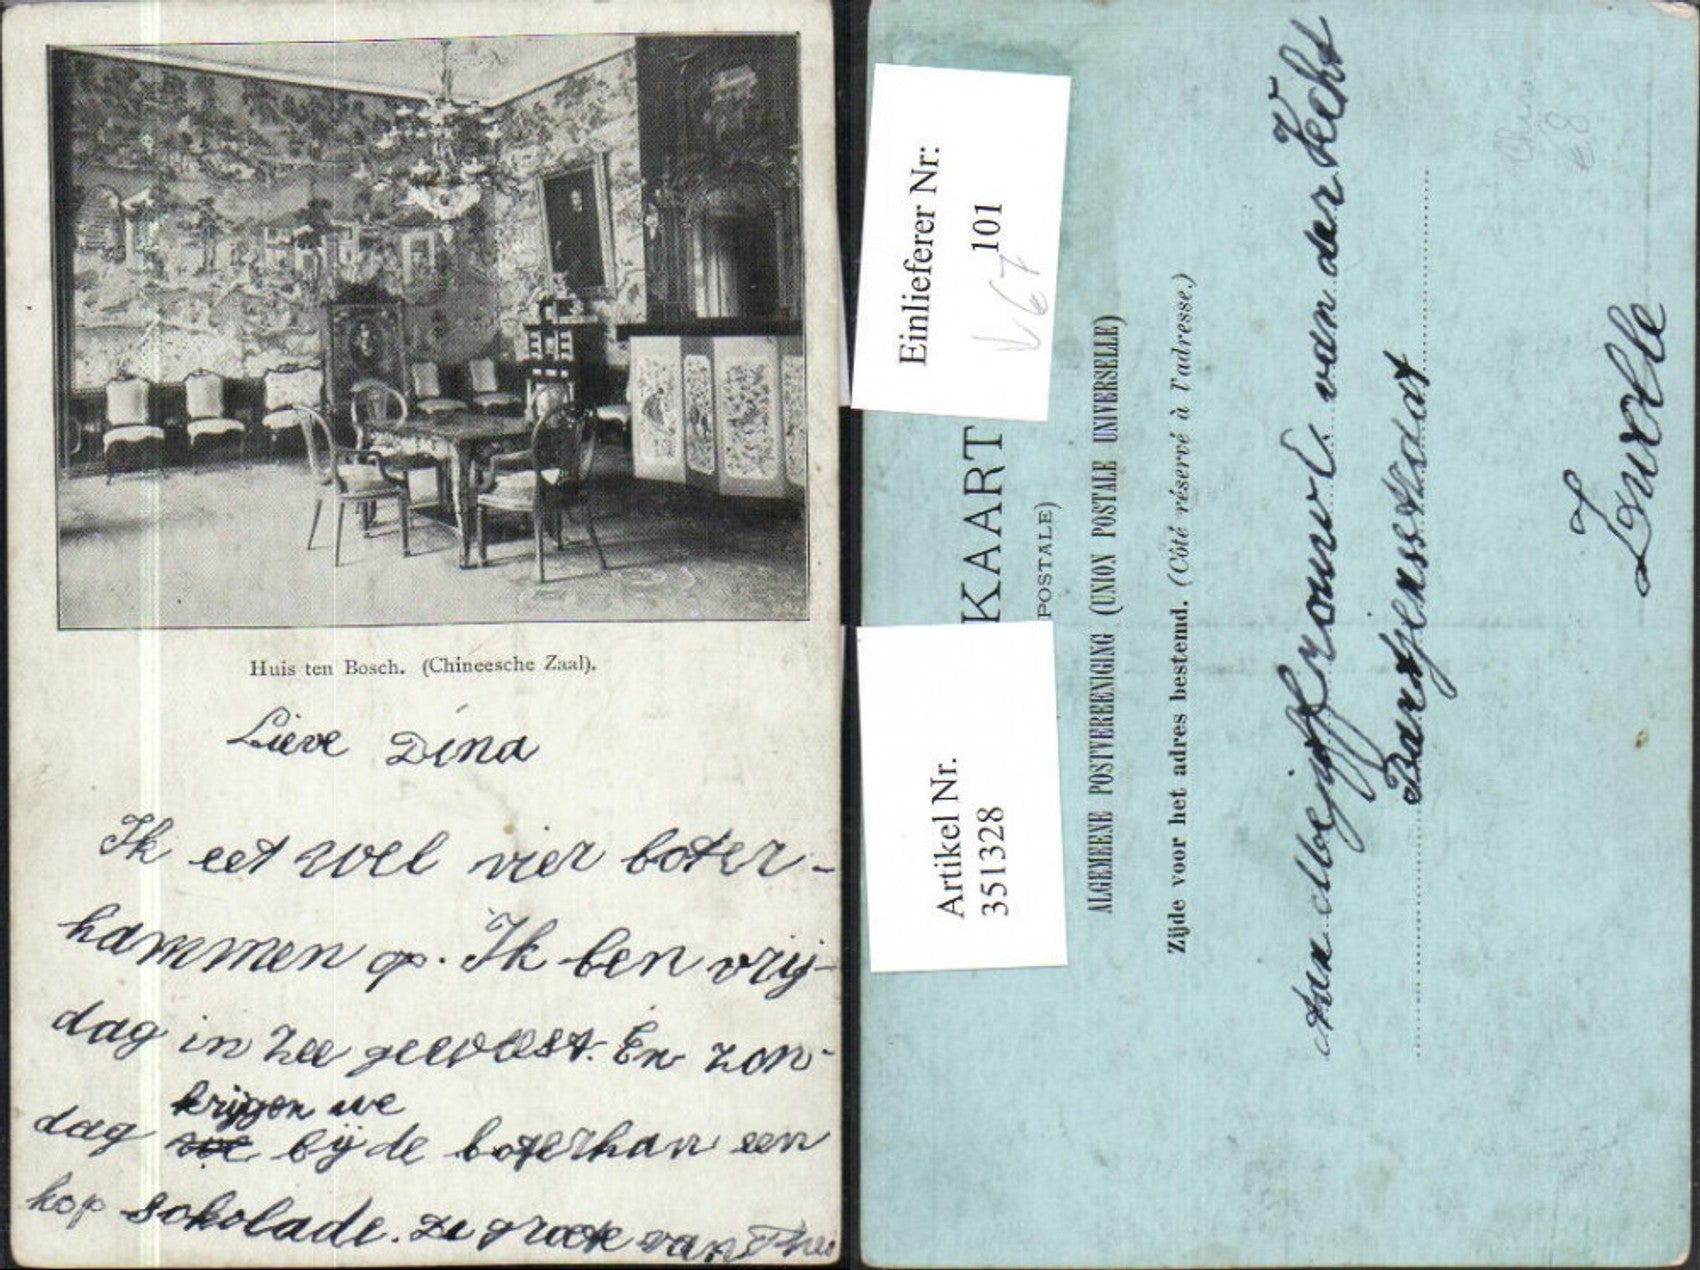 Huis ten Bosch. (Chineesche Zaal).
Lieve Dina
Ik eet wel vier boter-
hammen op. Ik ben vrij-
dag in zee geweest. En zon-
krijgen we
dag we bij de boterham een
kop sokolade. de groete van
Einlieferer Nr:
101
V67
KAART
POSTALE)
Artikel Nr.
351328
ALGEMEENE POSTVEREENIGING (UNION POSTALE UNIVERSELLE)
Zijde voor het adres bestemd. (Côté réservé à l'adresse.)
Aan Mejuffrouw C. van der Vecht
Bartjensstraat
Zwolle
68